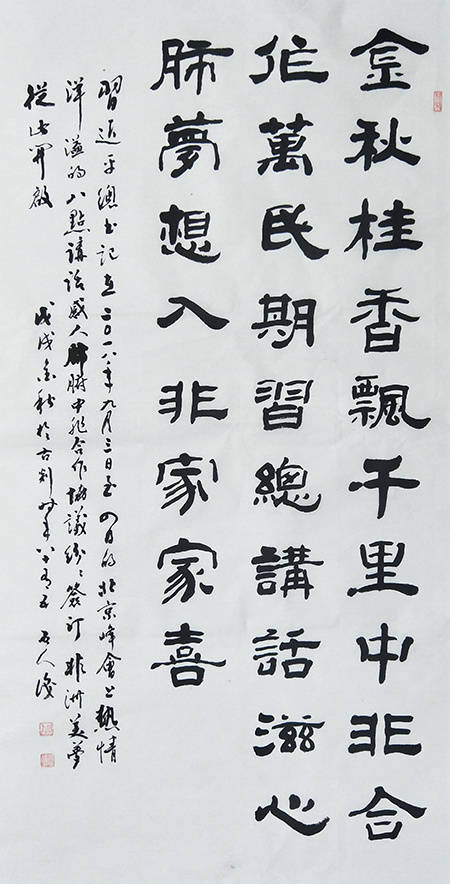 金秋桂香飄千里中非合
作萬民期習總講話滋心
肺夢想入非家家喜
習近平總书记在二〇一八年九月三日至四日的北京峰會上熱情
洋溢的八點講話感人肺腑中非合作協議纷纷簽订非洲美夢
從此開啟
戊戌金秋於古剡时年八十有五 石人後